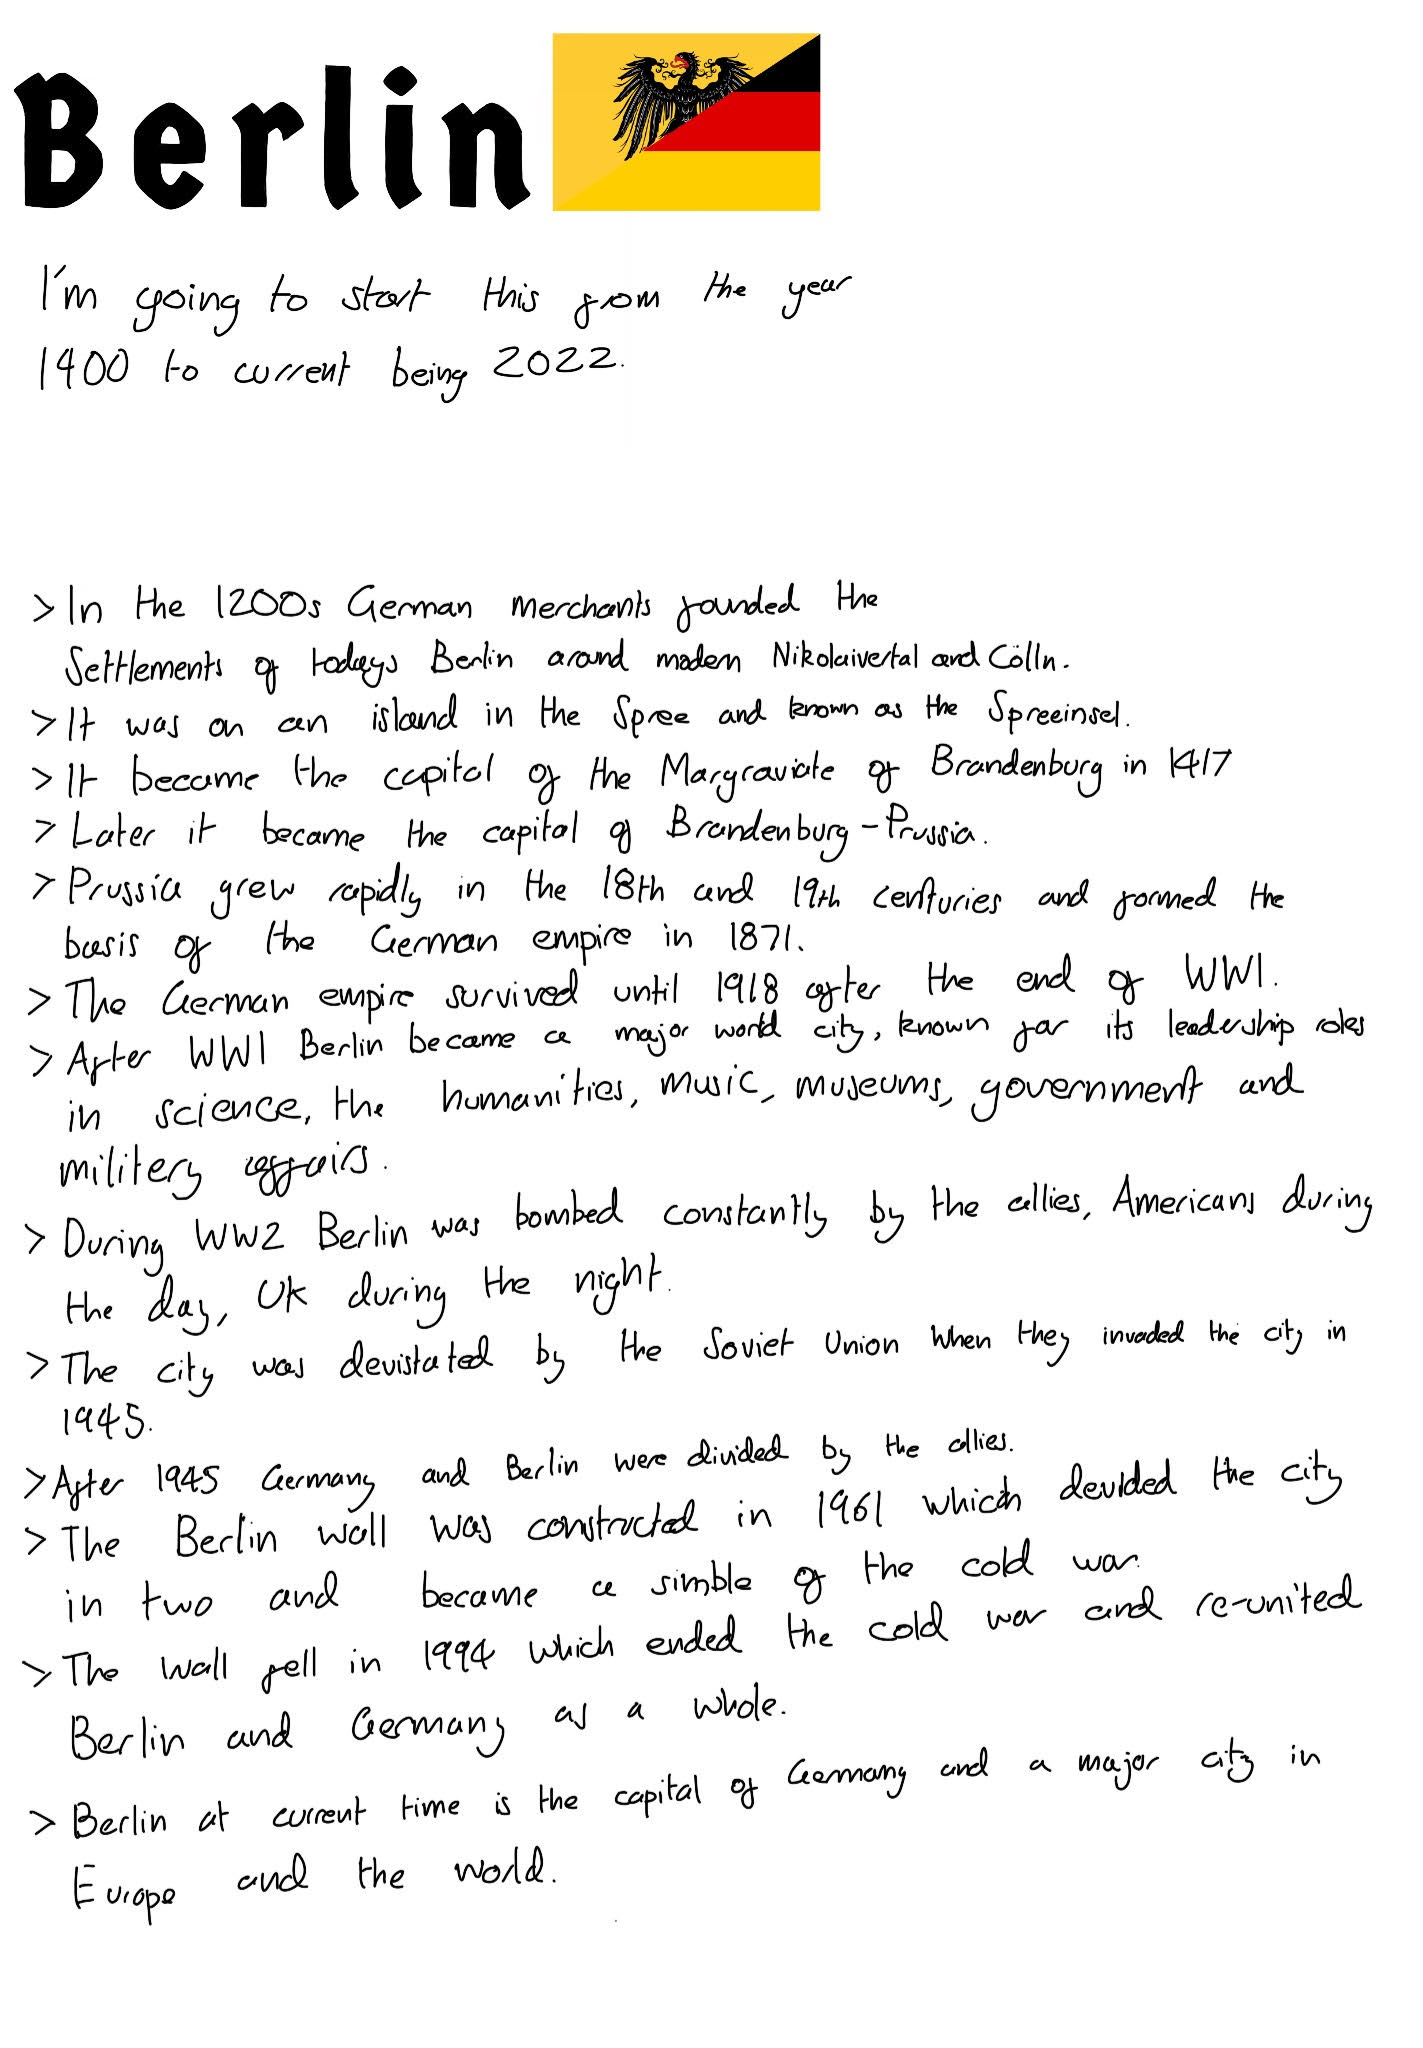 Berlin
I'm going to start this from the year
1400 to current being 2022.
> In the 1200s German merchants founded the
Settlements of todays Berlin around modern Nikolaivertal and Cölln.
> It was on an island in the Spree and known as the Spreeinsel.
> It became the capital of the Margraviate of Brandenburg in 1417
> Later it became the capital of Brandenburg-Prussia.
> Prussia grew rapidly in the 18th and 19th centuries and formed the
basis of the German empire in 1871.
> The German empire survived until 1918 after the end of WW1.
> After WW1 Berlin became a major world city, known for its leadership roles
in science, the humanities, music, museums, government and
militery affairs.
> During WW2 Berlin was bombed constantly by the allies, Americans during
the day, UK during the night.
> The city was devistated by the Soviet Union when they invaded the city in
1945.
> After 1945 Germany and Berlin were divided by the allies.
> The Berlin wall was constructed in 1961 which devided the city
in two and became a simble of the cold war.
> The wall fell in 1994 which ended the cold war and re-united
Berlin and Germany as a whole.
> Berlin at current time is the capital of Germany and a major city in
Europe and the world.